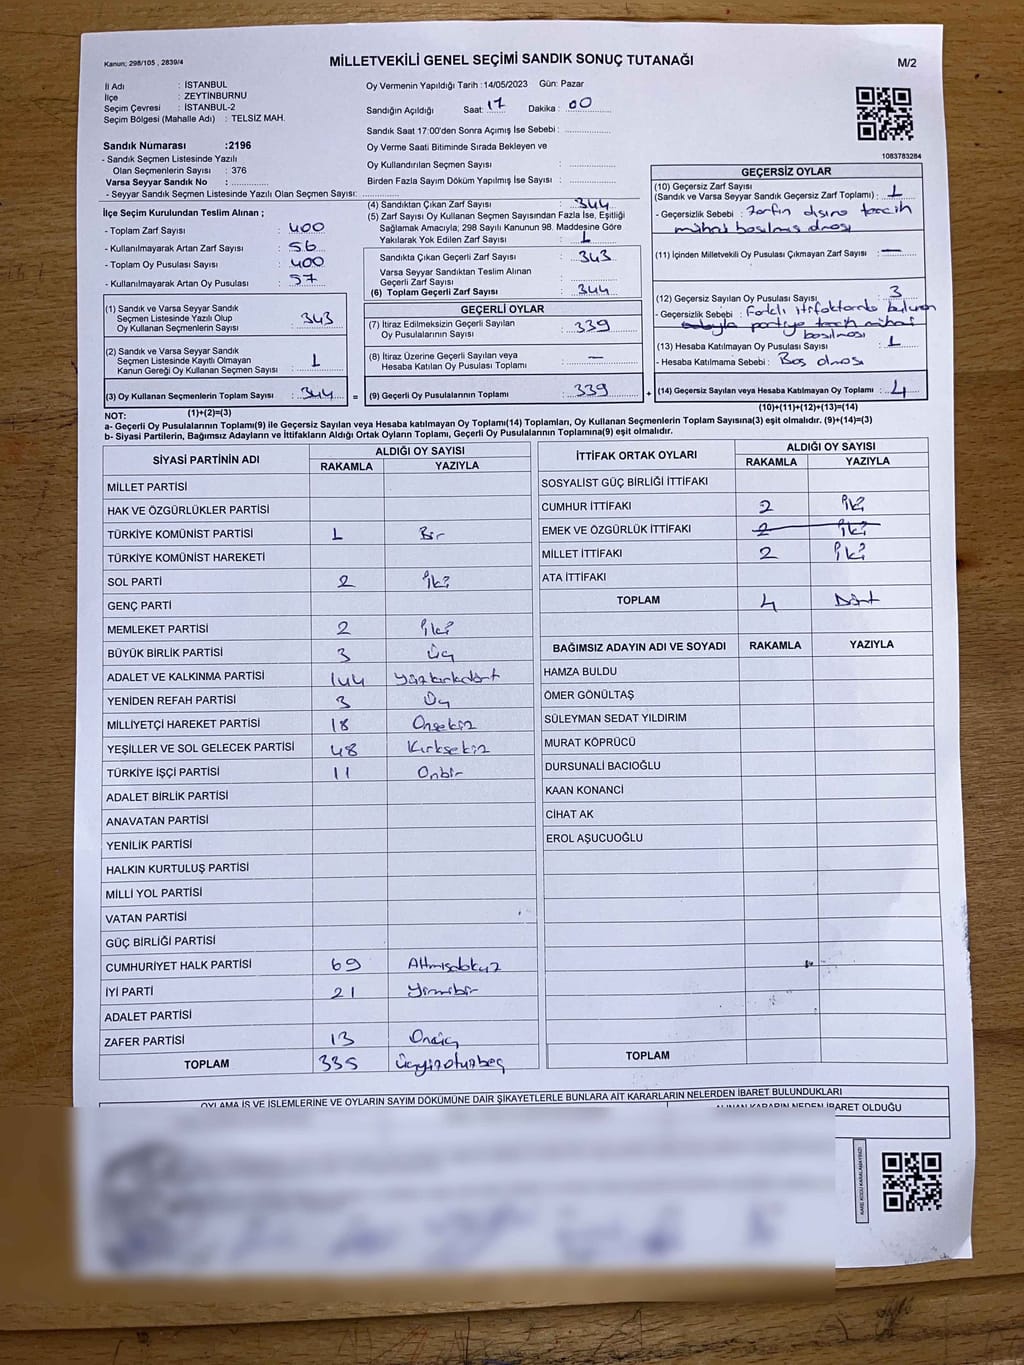 Kanun; 298/105 , 2839/4
MİLLETVEKİLİ GENEL SEÇİMİ SANDIK SONUÇ TUTANAĞI
M/2
İl Adı : İSTANBUL
İlçe : ZEYTİNBURNU
Seçim Çevresi : İSTANBUL-2
Seçim Bölgesi (Mahalle Adı) : TELSİZ MAH.
Oy Vermenin Yapıldığı Tarih : 14/05/2023 Gün: Pazar
Sandığın Açıldığı Saat: 17 Dakika : 00
Sandık Saat 17:00'den Sonra Açımış İse Sebebi :
Oy Verme Saati Bitiminde Sırada Bekleyen ve
Oy Kullandırılan Seçmen Sayısı :
Birden Fazla Sayım Döküm Yapılmış İse Sayısı :
1083783284
Sandık Numarası :2196
- Sandık Seçmen Listesinde Yazılı
Olan Seçmenlerin Sayısı : 376
Varsa Seyyar Sandık No :
- Seyyar Sandık Seçmen Listesinde Yazılı Olan Seçmen Sayısı:
İlçe Seçim Kurulundan Teslim Alınan ;
- Toplam Zarf Sayısı : 400
- Kullanılmayarak Artan Zarf Sayısı : 56
- Toplam Oy Pusulası Sayısı : 400
- Kullanılmayarak Artan Oy Pusulası : 57
(1) Sandık ve Varsa Seyyar Sandık
Seçmen Listesinde Yazılı Olup
Oy Kullanan Seçmenlerin Sayısı : 343
(2) Sandık ve Varsa Seyyar Sandık
Seçmen Listesinde Kayıtlı Olmayan
Kanun Gereği Oy Kullanan Seçmen Sayısı : 1
(3) Oy Kullanan Seçmenlerin Toplam Sayısı : 344 =
(1)+(2)=(3)
(4) Sandıktan Çıkan Zarf Sayısı : 344
(5) Zarf Sayısı Oy Kullanan Seçmen Sayısından Fazla İse, Eşitliği
Sağlamak Amacıyla; 298 Sayılı Kanunun 98. Maddesine Göre
Yakılarak Yok Edilen Zarf Sayısı : 1
Sandıkta Çıkan Geçerli Zarf Sayısı : 343
Varsa Seyyar Sandıktan Teslim Alınan
Geçerli Zarf Sayısı :
(6) Toplam Geçerli Zarf Sayısı : 344
GEÇERLİ OYLAR
(7) İtiraz Edilmeksizin Geçerli Sayılan
Oy Pusulalarının Sayısı : 339
(8) İtiraz Üzerine Geçerli Sayılan veya
Hesaba Katılan Oy Pusulası Toplamı : —
(9) Geçerli Oy Pusulalarının Toplamı : 339 +
GEÇERSİZ OYLAR
(10) Geçersiz Zarf Sayısı
(Sandık ve Varsa Seyyar Sandık Geçersiz Zarf Toplamı) : 1
- Geçersizlik Sebebi : Zarfın dışına tercih
mührü basılmış olması
(11) İçinden Milletvekili Oy Pusulası Çıkmayan Zarf Sayısı : —
(12) Geçersiz Sayılan Oy Pusulası Sayısı : 3
- Geçersizlik Sebebi : Farklı ittifaklarda bulunan
partiye tercih mührü
basılması
(13) Hesaba Katılmayan Oy Pusulası Sayısı : 1
- Hesaba Katılmama Sebebi : Boş olması
(14) Geçersiz Sayılan veya Hesaba Katılmayan Oy Toplamı : 4
(10)+(11)+(12)+(13)=(14)
NOT:
a- Geçerli Oy Pusulalarının Toplamı(9) ile Geçersiz Sayılan veya Hesaba katılmayan Oy Toplamı(14) Toplamları, Oy Kullanan Seçmenlerin Toplam Sayısına(3) eşit olmalıdır. (9)+(14)=(3)
b- Siyasi Partilerin, Bağımsız Adayların ve İttifakların Aldığı Ortak Oyların Toplamı, Geçerli Oy Pusulalarının Toplamına(9) eşit olmalıdır.
SİYASİ PARTİNİN ADI ALDIĞI OY SAYISI
RAKAMLA YAZIYLA
MİLLET PARTİSİ
HAK VE ÖZGÜRLÜKLER PARTİSİ
TÜRKİYE KOMÜNİST PARTİSİ 1 Bir
TÜRKİYE KOMÜNİST HAREKETİ
SOL PARTİ 2 İki
GENÇ PARTİ
MEMLEKET PARTİSİ 2 İki
BÜYÜK BİRLİK PARTİSİ 3 Üç
ADALET VE KALKINMA PARTİSİ 144 Yüzkırkdört
YENİDEN REFAH PARTİSİ 3 Üç
MİLLİYETÇİ HAREKET PARTİSİ 18 Onsekiz
YEŞİLLER VE SOL GELECEK PARTİSİ 48 Kırksekiz
TÜRKİYE İŞÇİ PARTİSİ 11 Onbir
ADALET BİRLİK PARTİSİ
ANAVATAN PARTİSİ
YENİLİK PARTİSİ
HALKIN KURTULUŞ PARTİSİ
MİLLİ YOL PARTİSİ
VATAN PARTİSİ
GÜÇ BİRLİĞİ PARTİSİ
CUMHURİYET HALK PARTİSİ 69 Altmışdokuz
İYİ PARTİ 21 Yirmibir
ADALET PARTİSİ
ZAFER PARTİSİ 13 Onüç
TOPLAM 335 Üçyüzotuzbeş
İTTİFAK ORTAK OYLARI ALDIĞI OY SAYISI
RAKAMLA YAZIYLA
SOSYALİST GÜÇ BİRLİĞİ İTTİFAKI
CUMHUR İTTİFAKI 2 İki
EMEK VE ÖZGÜRLÜK İTTİFAKI 2 İki
MİLLET İTTİFAKI 2 İki
ATA İTTİFAKI
TOPLAM 4 Dört
BAĞIMSIZ ADAYIN ADI VE SOYADI RAKAMLA YAZIYLA
HAMZA BULDU
ÖMER GÖNÜLTAŞ
SÜLEYMAN SEDAT YILDIRIM
MURAT KÖPRÜCÜ
DURSUNALİ BACIOĞLU
KAAN KONANCİ
CİHAT AK
EROL AŞUCUOĞLU
TOPLAM
OYLAMA İŞ VE İŞLEMLERİNE VE OYLARIN SAYIM DÖKÜMÜNE DAİR ŞİKAYETLERLE BUNLARA AİT KARARLARIN NELERDEN İBARET BULUNDUKLARI
ALINAN KARARIN NEDEN İBARET OLDUĞU
KARE KODU KARALAMAYINIZ!